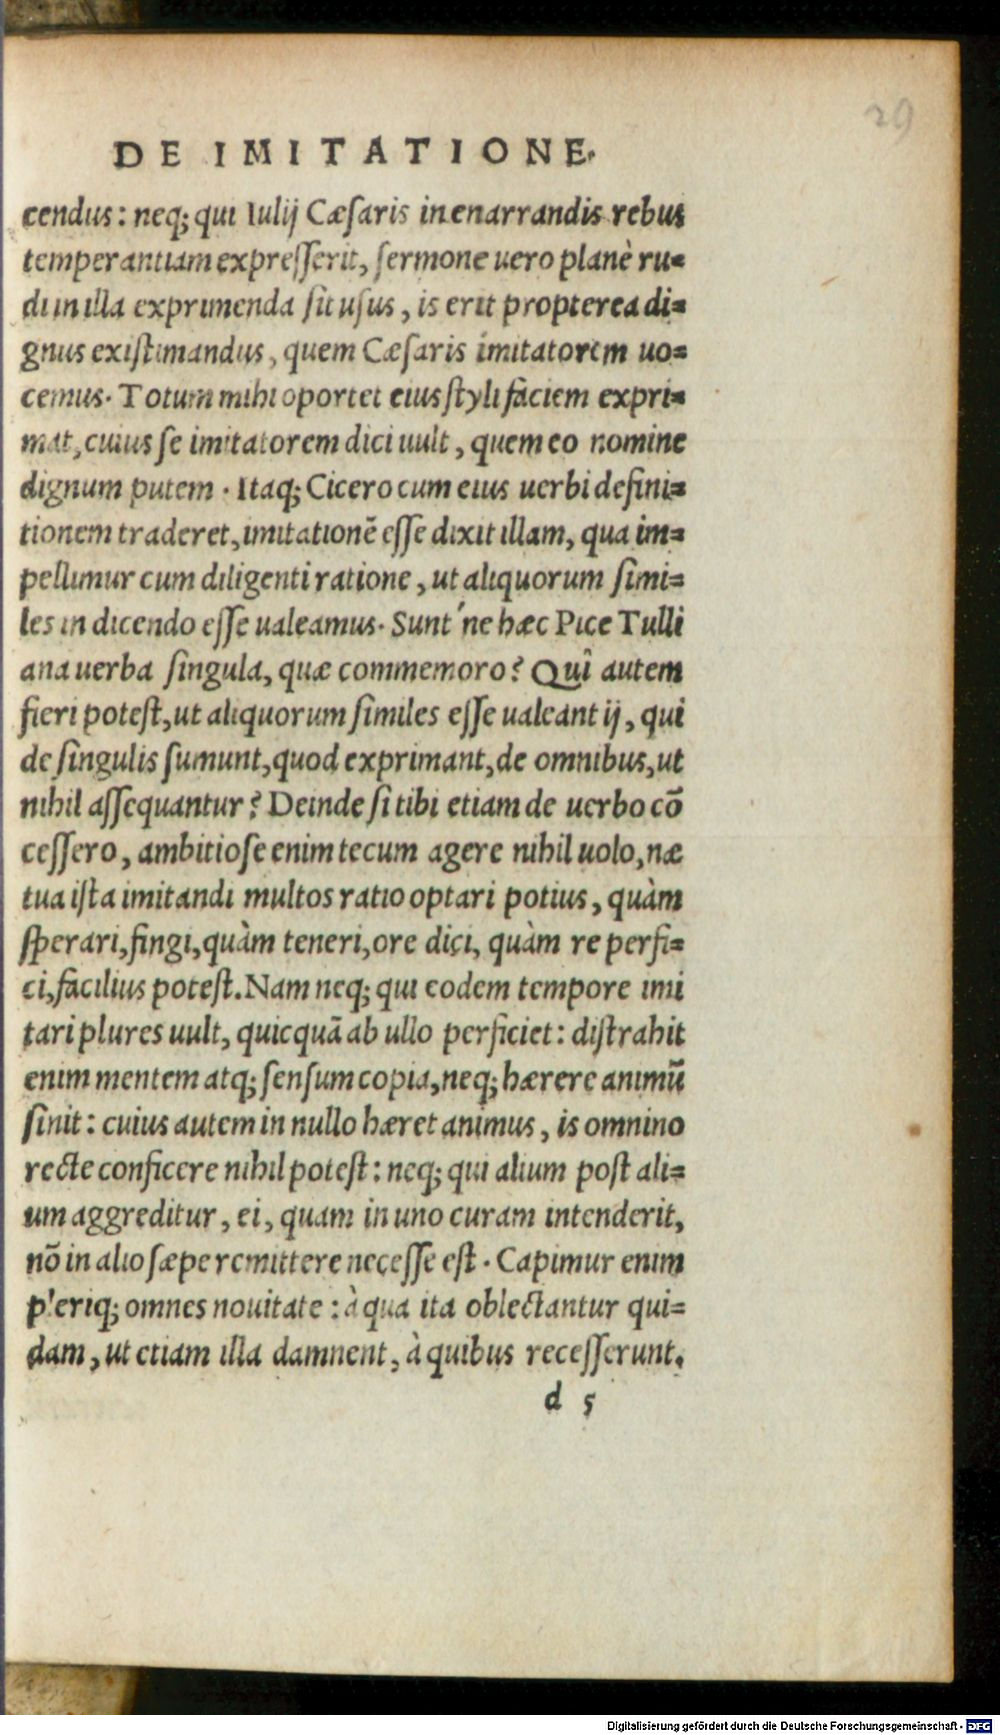 29
DE IMITATIONE.
cendus: neq; qui Iulij Cæsaris in enarrandis rebus
temperantiam expresserit, sermone uero planè ru=
di in illa exprimenda sit usus, is erit propterea di=
gnus existimandus, quem Cæsaris imitatorem uo=
cemus. Totum mihi oportet eius styli faciem expri=
mat, cuius se imitatorem dici uult, quem eo nomine
dignum putem. Itaq; Cicero cum eius uerbi defini=
tionem traderet, imitationē esse dixit illam, qua im=
pellimur cum diligenti ratione, ut aliquorum simi=
les in dicendo esse ualeamus. Sunt'ne hæc Pice Tulli
ana uerba singula, quæ commemoro? Quî autem
fieri potest, ut aliquorum similes esse ualeant ij, qui
de singulis sumunt, quod exprimant, de omnibus, ut
nihil assequantur? Deinde si tibi etiam de uerbo cō
cessero, ambitiose enim tecum agere nihil uolo, næ
tua ista imitandi multos ratio optari potius, quàm
sperari, fingi, quàm teneri, ore dici, quàm re perfi=
ci, facilius potest. Nam neq; qui eodem tempore imi
tari plures uult, quicquā ab ullo perficiet: distrahit
enim mentem atq; sensum copia, neq; hærere animū
sinit: cuius autem in nullo hæret animus, is omnino
recte conficere nihil potest: neq; qui alium post ali=
um aggreditur, ei, quam in uno curam intenderit,
nō in alio sæpe remittere necesse est. Capimur enim
p'eriq; omnes nouitate: à qua ita oblectantur qui=
dam, ut etiam illa damnent, à quibus recesserunt.
d 5
Digitalisierung gefördert durch die Deutsche Forschungsgemeinschaft - DFG